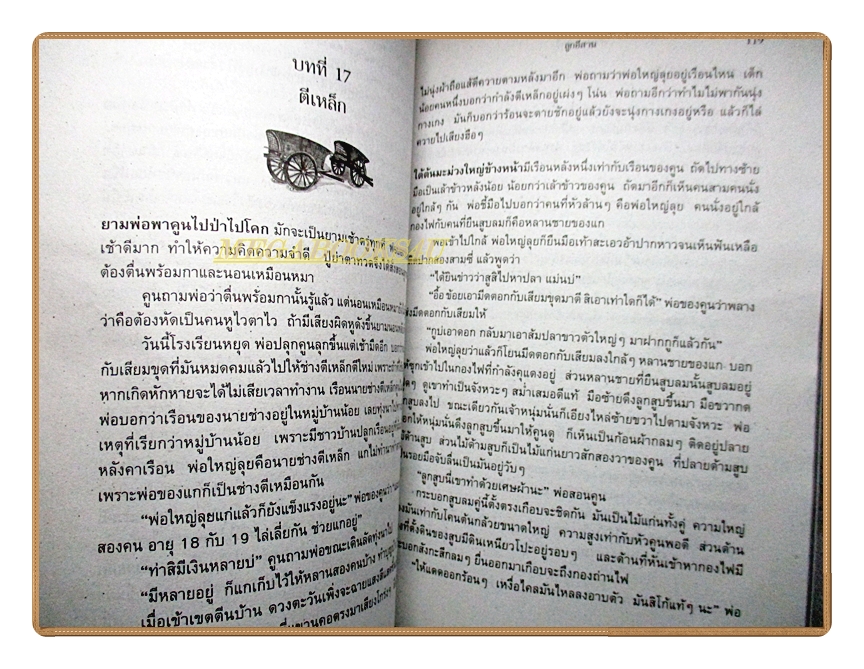 บทที่ 17
ตีเหล็ก
ยามพ่อพาคูนไปป่าไปโคก มักจะเป็นยามเช้าตรู่ทุก
เช้าดีมาก ทำให้ความคิดความจำดี ปู่ย่าตาทวดจึงได้สั่งสอน
ต้องตื่นพร้อมกาและนอนเหมือนหมา
คูนถามพ่อว่าตื่นพร้อมกานั้นรู้แล้ว แต่นอนเหมือนหมา
ว่าคือต้องหัดเป็นคนหูไวตาไว ถ้ามีเสียงผิดหูดังขึ้นยามนอน
วันนี้โรงเรียนหยุด พ่อปลุกคูนลุกขึ้นแต่เช้ามืดอีก บอก
กับเสียมขุดที่มันหมดคมแล้วไปให้ช่างตีเหล็กตีใหม่ เพราะถ้า
หากเกิดหักหายจะได้ไม่เสียเวลาทำงาน เรือนนายช่างตีเหล็ก
พ่อบอกว่าเรือนของนายช่างอยู่ในหมู่บ้านน้อย เลยทุ่งนาไป
เหตุที่เรียกว่าหมู่บ้านน้อย เพราะมีชาวบ้านปลูกเรือนอยู่
หลังคาเรือน พ่อใหญ่ลุยคือนายช่างตีเหล็ก แกไม่ทำนา
เพราะพ่อของแกก็เป็นช่างตีเหมือนกัน
“พ่อใหญ่ลุยแก่แล้วก็ยังแข็งแรงอยู่นะ” พ่อของคูนว่า
สองคน อายุ 18 กับ 19 ไล่เลี่ยกัน ช่วยแกอยู่”
“ท่าสิมีเงินหลายบ่” คูนถามพ่อขณะเดินลัดทุ่งนาไป
“มีหลายอยู่ ก็แกเก็บไว้ให้หลานสองคนบ้าง ทำบุญ
เมื่อเข้าเขตตีนบ้าน ดวงตะวันเพิ่งจะฉายแสง
ลูกอีสาน
119
ไม่นุ่งผ้าถือแส้ตีควายตามหลังมาอีก พ่อถามว่าพ่อใหญ่ลุยอยู่เรือนไหน เด็ก
น้อยคนหนึ่งบอกว่ากำลังตีเหล็กอยู่เผ่งๆ โน่น พ่อถามอีกว่าทำไมไม่พากันนุ่ง
กางเกง มันก็บอกว่าร้อนจะตายชักอยู่แล้วยังจะนุ่งกางเกงอยู่หรือ แล้วก็ไล่
ควายไปเสียงฮือๆ
ใต้ต้นมะม่วงใหญ่ข้างหน้ามีเรือนหลังหนึ่งเท่ากับเรือนของคูน ถัดไปทางซ้าย
มือเป็นเล้าข้าวหลังน้อย น้อยกว่าเล้าข้าวของคูน ถัดมาอีกก็เห็นคนสามคนนั่ง
อยู่ใกล้ๆ กัน พ่อชี้มือไปบอกว่าคนที่หัวล้านๆ คือพ่อใหญ่ลุย คนนั่งอยู่ใกล้
กองไฟกับคนที่ยืนสูบลมก็คือหลานชายของแก
เข้าไปใกล้ พ่อใหญ่ลุยก็ยืนมือเท้าสะเอวอ้าปากหาวจนเห็นฟันเหลือ
ปากสองสามซี่ แล้วพูดว่า
“ได้ยินข่าวว่าสูสิไปหาปลา แม่นบ่”
“อื้อ ข้อยเอามีดตอกกับเสียมขุดมาตี สิเอาเท่าใดก็ได้” พ่อของคูนว่าพลาง
ส่งมีดตอกกับเสียมให้
“กูบ่เอาดอก กลับมาเอาส้มปลาขาวตัวใหญ่ๆ มาฝากกูก็แล้วกัน”
พ่อใหญ่ลุยว่าแล้วก็โยนมีดตอกกับเสียมลงใกล้ๆ หลานชายของแก บอก
ซุกเข้าไปในกองไฟที่กำลังคุแดงอยู่ ส่วนหลานชายที่ยืนสูบลมนั้นสูบลมอยู่
ดูเขาทำเป็นจังหวะๆ สม่ำเสมอดีแท้ มือซ้ายดึงลูกสูบขึ้นมา มือขวากด
สูบลงไป ขณะเดียวกันเจ้าหนุ่มนั่นก็เอียงไหล่ซ้ายขวาไปตามจังหวะ พ่อ
บอกให้หนุ่มนั่นดึงลูกสูบขึ้นมาให้คูนดู ก็เห็นเป็นก้อนผ้ากลมๆ ติดอยู่ปลาย
ด้ามสูบ ส่วนไม้ด้ามสูบก็เป็นไม้แก่นยาวสักสองวาของคูน ที่ปลายด้ามสูบ
รอยมือจับลื่นเป็นมันอยู่วับๆ
“ลูกสูบนี่เขาทำด้วยเศษผ้านะ” พ่อสอนคูน
กระบอกสูบลมคู่นี้ตั้งตรงเกือบจะชิดกัน มันเป็นไม้แก่นทั้งคู่ ความใหญ่
เท่ากับโคนต้นกล้วยขนาดใหญ่ ความสูงเท่ากับหัวคูนพอดี ส่วนด้าน
ที่ตั้งดินของสูบมีดินเหนียวโปะอยู่รอบๆ และด้านที่หันเข้าหากองไฟมี
กระบอกสังกะสีกลมๆ ยื่นออกมาเกือบจะถึงกองถ่านไฟ
“ให้แดดออกร้อนๆ เหงื่อไคลมันไหลลงอาบตัว มันสิโก้แท้ๆ นะ” พ่อ